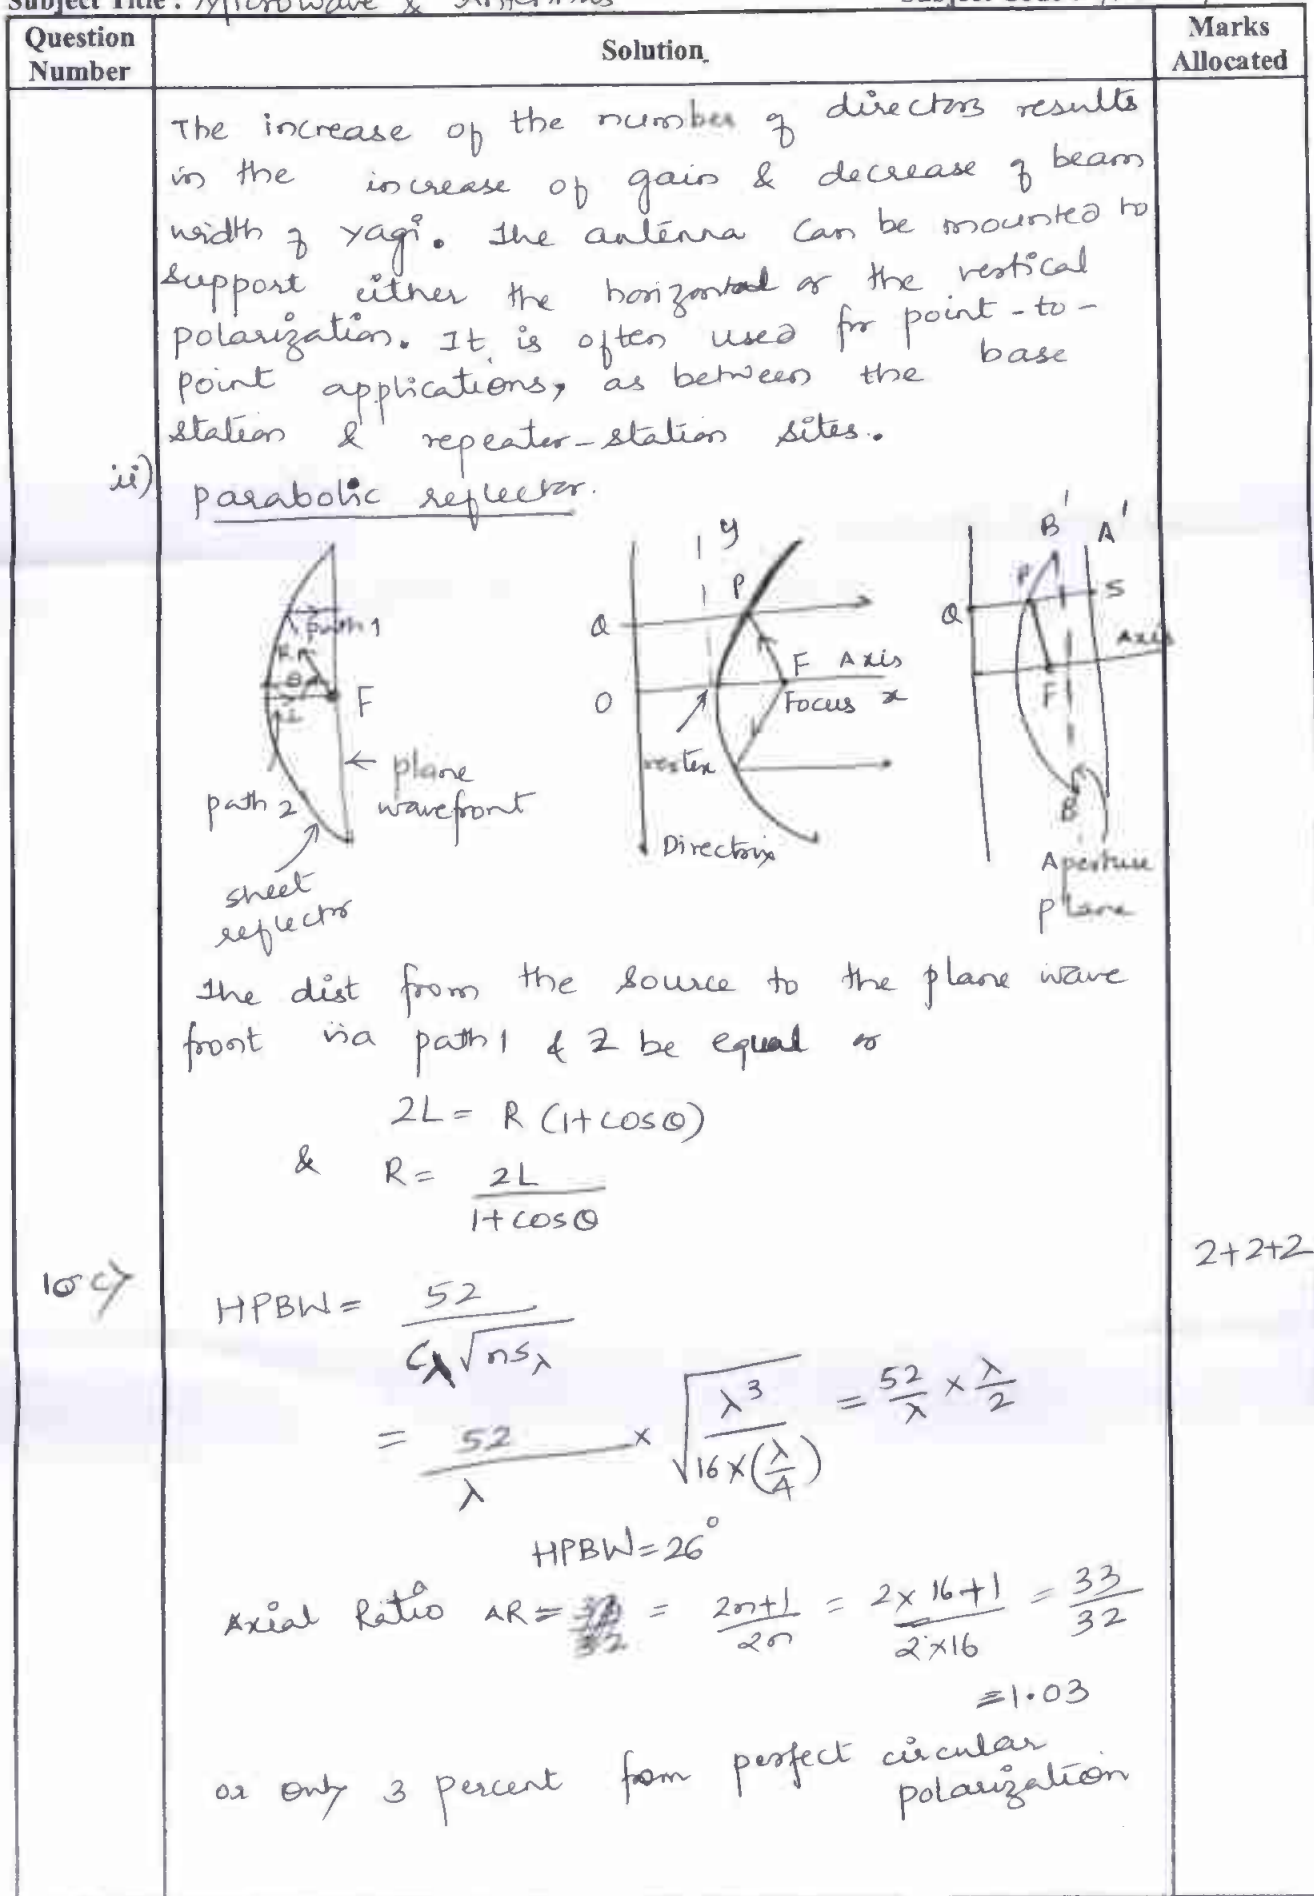 Subject Title : Microwave & Antennas
Question Number
Solution
Marks Allocated
The increase of the number of directors results
in the increase of gain & decrease of beam
width of yagi. The antenna can be mounted to
support either the horizontal or the vertical
polarization. It is often used for point-to-
point applications, as between the base
station & repeater-station sites.
ii) parabolic reflector.
path 1
R
θ
L
F
path 2
plane wavefront
sheet reflector
y
P
Q
O
F Axis
Focus x
vertex
Directrix
B' A'
P
Q
S
Axis
F
B
Aperture plane
The dist from the source to the plane wave
front via path 1 & 2 be equal or
2L = R (1+cosθ)
& R = 2L / 1+cosθ
2+2+2
10 c)
HPBW = 52 / Cλ√nSλ
= 52/λ × √(λ³ / 16×(λ/4)) = 52/λ × λ/2
HPBW = 26°
Axial Ratio AR = = 2n+1 / 2n = 2×16+1 / 2×16 = 33/32
=1.03
or only 3 percent from perfect circular
polarization